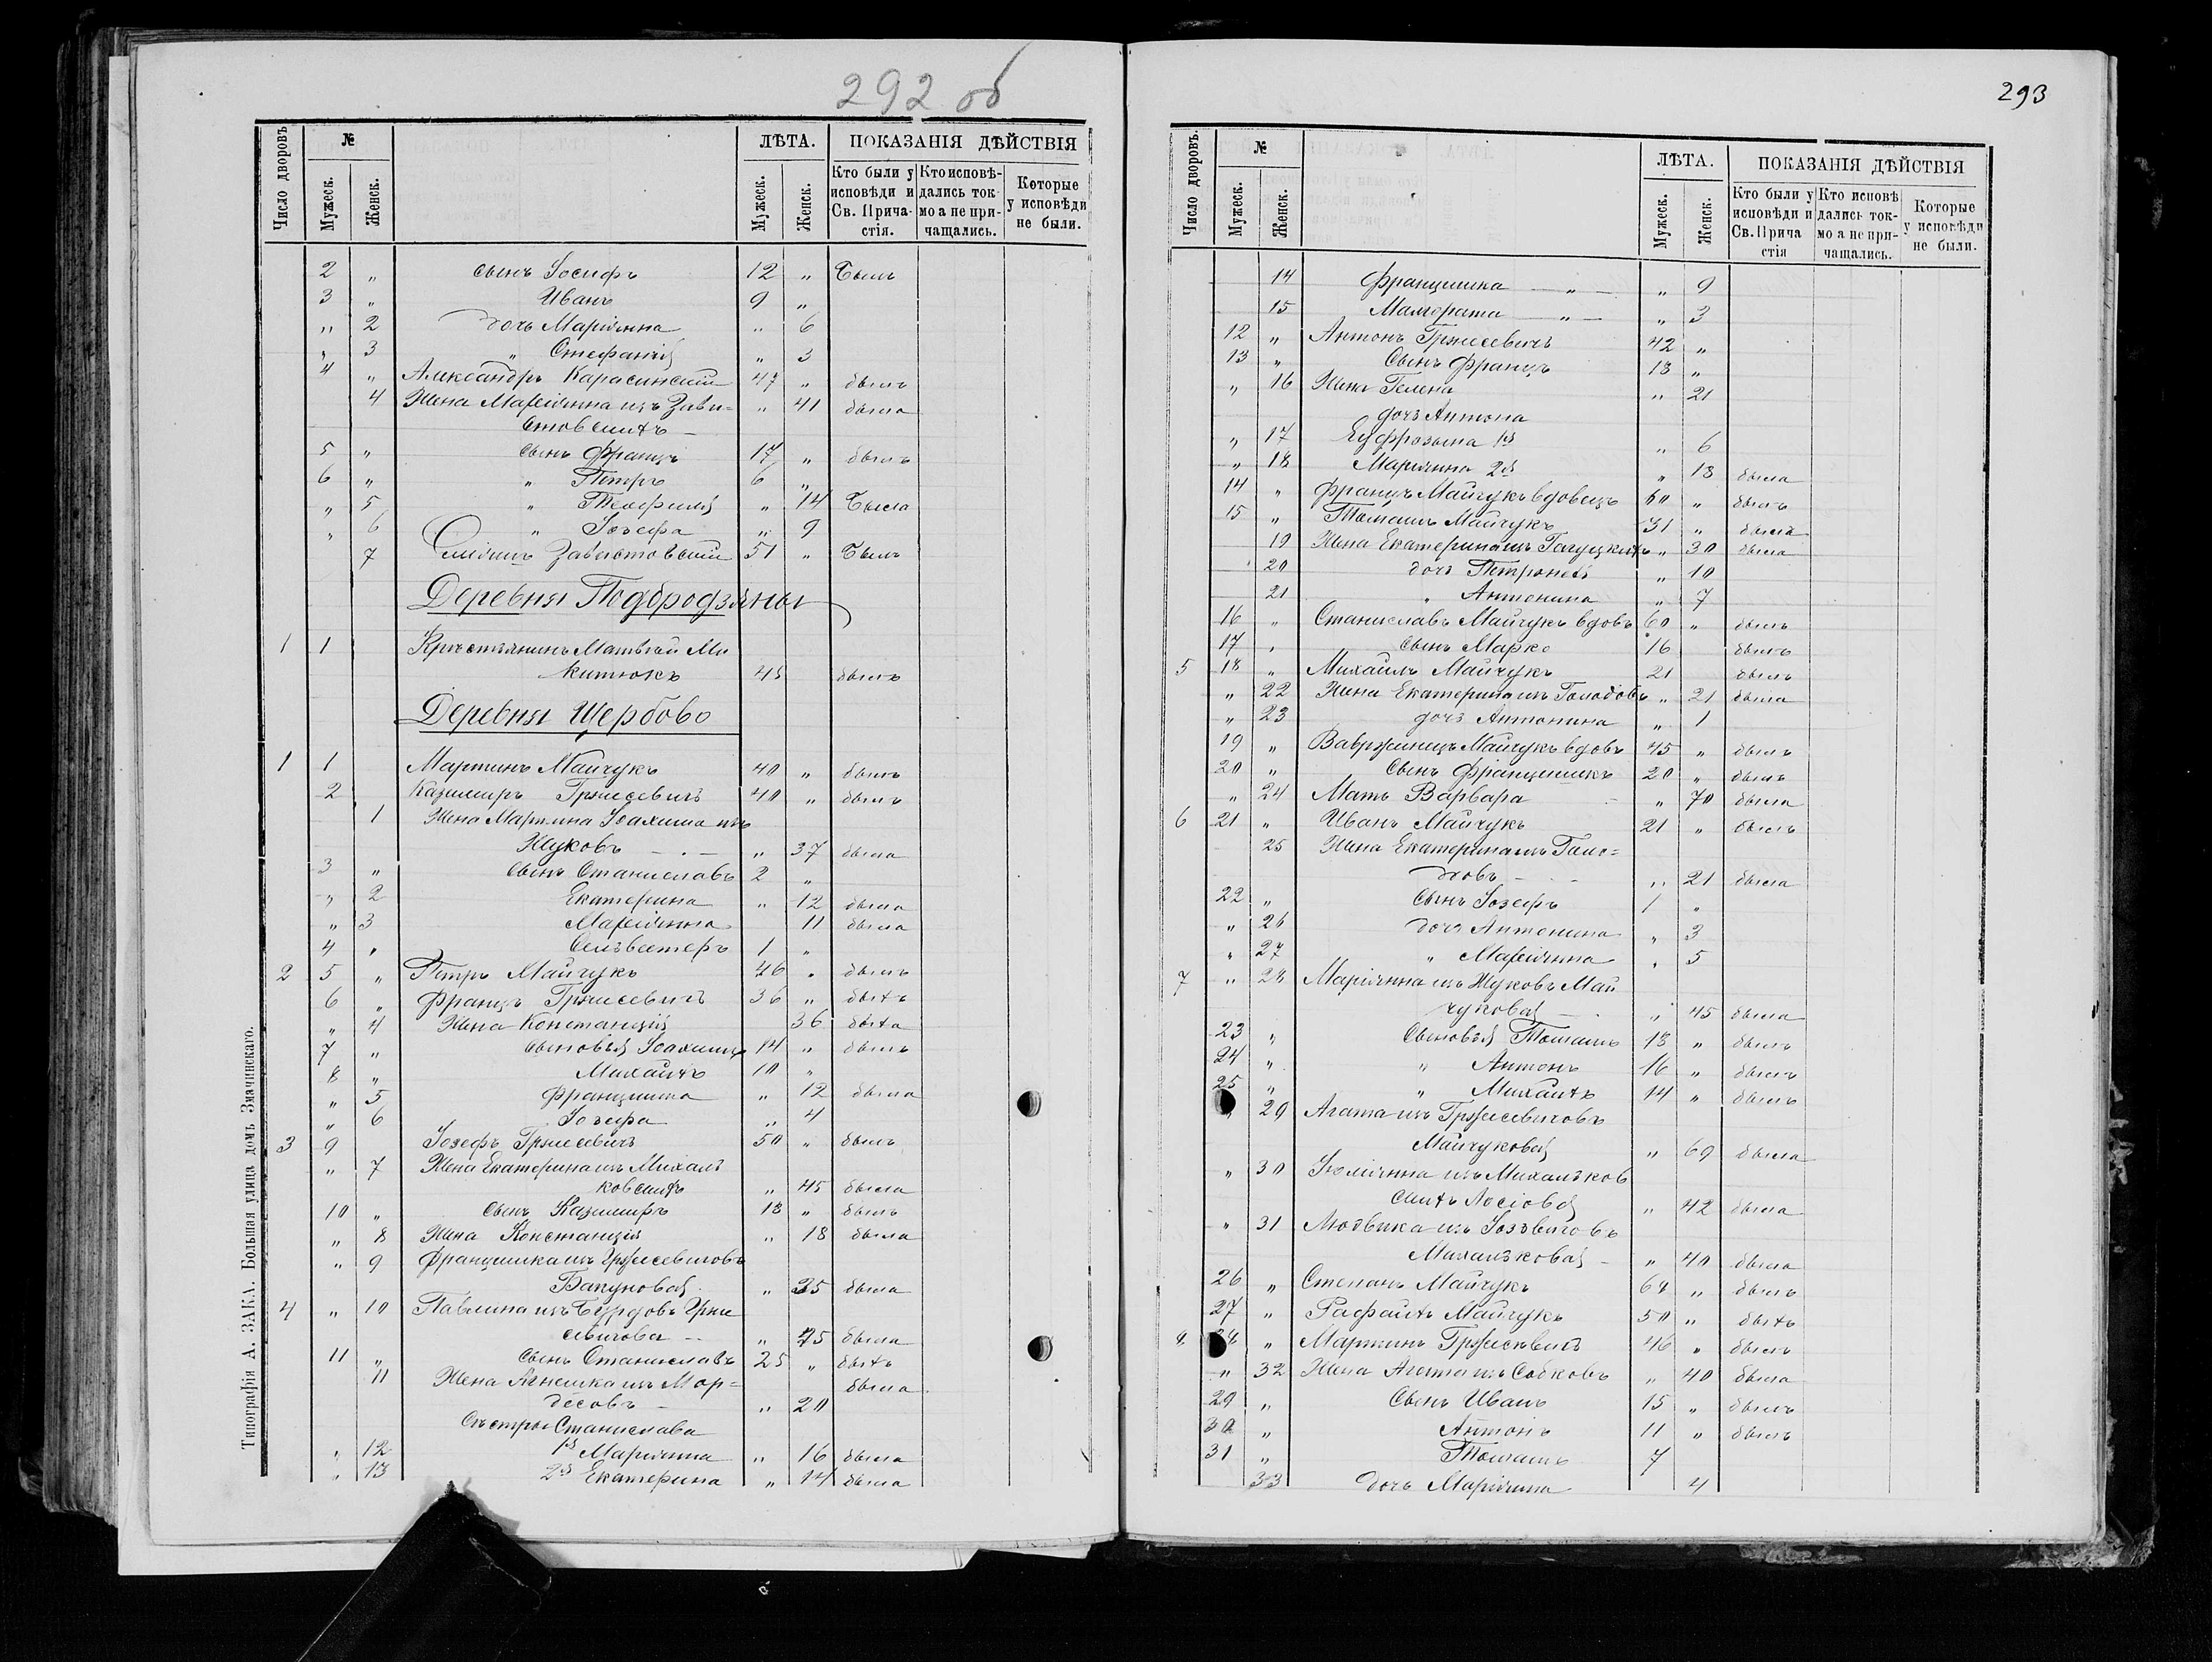 292 об
Число дворовъ
№
Мужеск.
Женск.
ЛѢТА.
Мужеск.
Женск.
ПОКАЗАНІЯ ДѢЙСТВІЯ
Кто были у исповѣди и Св. Прича-стія.
Кто исповѣ-дались ток мо а не при-чащались.
Которые у исповѣди не были.
2 „ сынъ Іосифъ 12 „ Былъ
3 „ Иванъ 9 „
„ 2 дочь Маріянна „ 6
„ 3 „ Стефанія „ 3
4 „ Александръ Карасинскій 47 „ былъ
4 Жена Маріянна изъ Зави= „ 41 была
стовскихъ —
5 „ сынъ Францъ 17 „ былъ
6 „ „ Петръ 6 „
„ 5 „ Теофилія „ 14 Была
„ 6 „ Іозефа „ 9
7 Завистовскій 51 „ Былъ
Деревня Подбродзяны
1 1 Крестьянинъ Матвѣй Ми
китюкъ 45 былъ
Деревня Щербово
1 1 Мартинъ Майчукъ 40 „ былъ
2 Казимиръ Гржесевичъ 40 „ былъ
1 Жена Мартина Іоахима изъ
Жуковъ — . — „ 37 была
3 „ сынъ Станиславъ 2 „
„ 2 Екатерина „ 12 была
„ 3 Маріянна 11 была
4 „ Сельвестеръ 1 „
2 5 „ Петръ Майчукъ 46 „ былъ
6 „ Францъ Гржесевичъ 36 „ былъ
„ 4 Жена Констанція 36 была
7 „ сыновья Іоахимъ 14 „ былъ
8 „ Михаилъ 10 „
„ 5 Францишка „ 12 была
„ 6 Іозефа „ 4
3 9 Іозефъ Гржесевичъ 50 „ былъ
„ 7 Жена Екатерина изъ Михаль
ковскихъ „ 45 была
10 „ сынъ Казимиръ 18 „ былъ
„ 8 Жена Констанція „ 18 была
„ 9 Францишка изъ Гржесевичовъ
Бакуновая „ 35 была
4 „ 10 Павлина изъ Бурдовъ Грже
севичова — „ 75 была
11 „ сынъ Станиславъ 25 „ былъ
11 Жена Агнешка изъ Мор= была
десовъ — „ 20
Сестры Станислава
„ 12 1я Маріянна „ 16 была
„ 13 2я Екатерина „ 14 была
Типографія А. ЗАКА. Большая улица домъ Змачинскаго.
293
Число дворовъ.
№
Мужеск.
Женск.
ЛѢТА.
Мужеск.
Женск.
ПОКАЗАНІЯ ДѢЙСТВІЯ
Кто были у исповѣди и Св. Прича стія
Кто исповѣ дались ток-мо а не при-чащались.
Которые у исповѣди не были.
14 Францишка — „ — „ 9
15 Малгората — „ — „ 3
12 „ Антонъ Гржесевичъ 42 „
13 „ Сынъ Францъ 13 „
„ 16 Жена Гелена „ 21
дочь Антона
„ 17 Еуфрозына 1я „ 6
„ 18 Маріянна 2я „ 13 была
14 „ Францъ Майчукъ вдовецъ 60 „ былъ
15 „ Томашъ Майчукъ 31 „ былъ
19 Жена Екатерина изъ „ 30 была
20 дочь Петронеля „ 10
21 „ Антонина „ 7
16 „ Станиславъ Майчукъ вдовъ 60 „ былъ
17 „ сынъ Марко 16 былъ
5 18 „ Михаилъ Майчукъ 21 былъ
„ 22 Жена Екатерина изъ Голодовъ „ 21 была
„ 23 дочь Антонина „ 1
19 „ Вавржинецъ Майчукъ вдовъ 45 „ былъ
20 „ Сынъ Францишекъ 20 „ былъ
„ 24 Мать Варвара „ 70 была
6 21 „ Иванъ Майчукъ 21 „ былъ
25 Жена Екатерина изъ Голо=
довъ — „ 21 была
22 „ Сынъ Іозефъ 1 „
„ 26 дочь Антонина „ 3
„ 27 „ Маріянна „ 5
7 „ 28 Маріянна изъ Жуковъ Май
чуковая — „ 45 была
23 „ Сыновья Томашъ 18 „ былъ
24 „ „ Антонъ 16 „ былъ
25 „ „ Михаилъ 14 „ былъ
29 Агата изъ Гржесевичовъ
Майчуковая „ 69 была
„ 30 Юліянна изъ Михальков
скихъ „ 42 была
„ 31 Людвика изъ
Михальковая — „ 40 была
26 „ Степанъ Майчукъ 64 „ былъ
27 „ Рафаилъ Майчукъ 50 „ былъ
8 28 „ Мартинъ Гржесевичъ 46 „ былъ
„ 32 Жена Агата изъ Собковъ „ 40 была
29 „ Сынъ Иванъ 15 „ былъ
30 „ Антонъ 11 „ былъ
31 „ Томашъ 7
33 дочь Маріянна 4